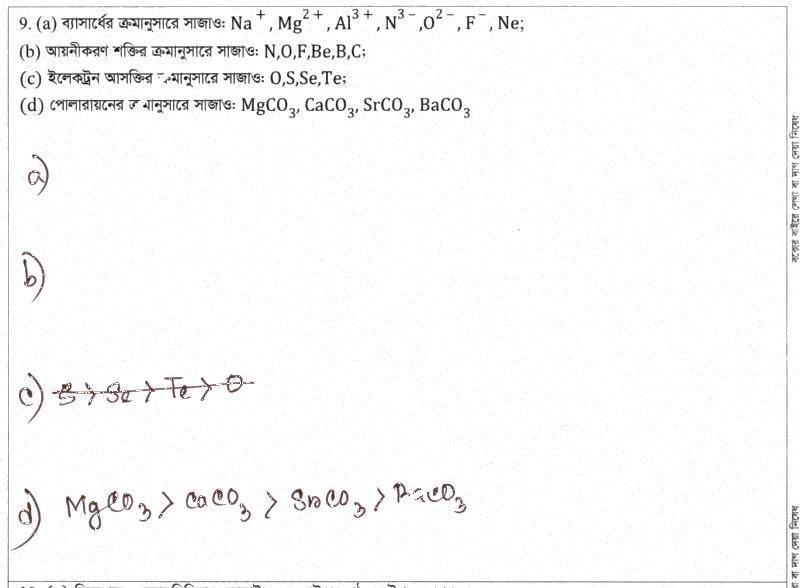 9. (a) ব্যাসার্ধের ক্রমানুসারে সাজাও: Na⁺, Mg²⁺, Al³⁺, N³⁻, O²⁻, F⁻, Ne;
(b) আয়নীকরণ শক্তির ক্রমানুসারে সাজাও: N,O,F,Be,B,C;
(c) ইলেকট্রন আসক্তির ক্রমানুসারে সাজাও: O,S,Se,Te;
(d) পোলারায়নের ক্রমানুসারে সাজাও: MgCO₃, CaCO₃, SrCO₃, BaCO₃
a)
b)
c) S > Se > Te > O
d) MgCO₃ > CaCO₃ > SrCO₃ > BaCO₃
বক্সের বাইরে লেখা বা দাগ দেয়া নিষেধ
বা দাগ দেয়া নিষেধ